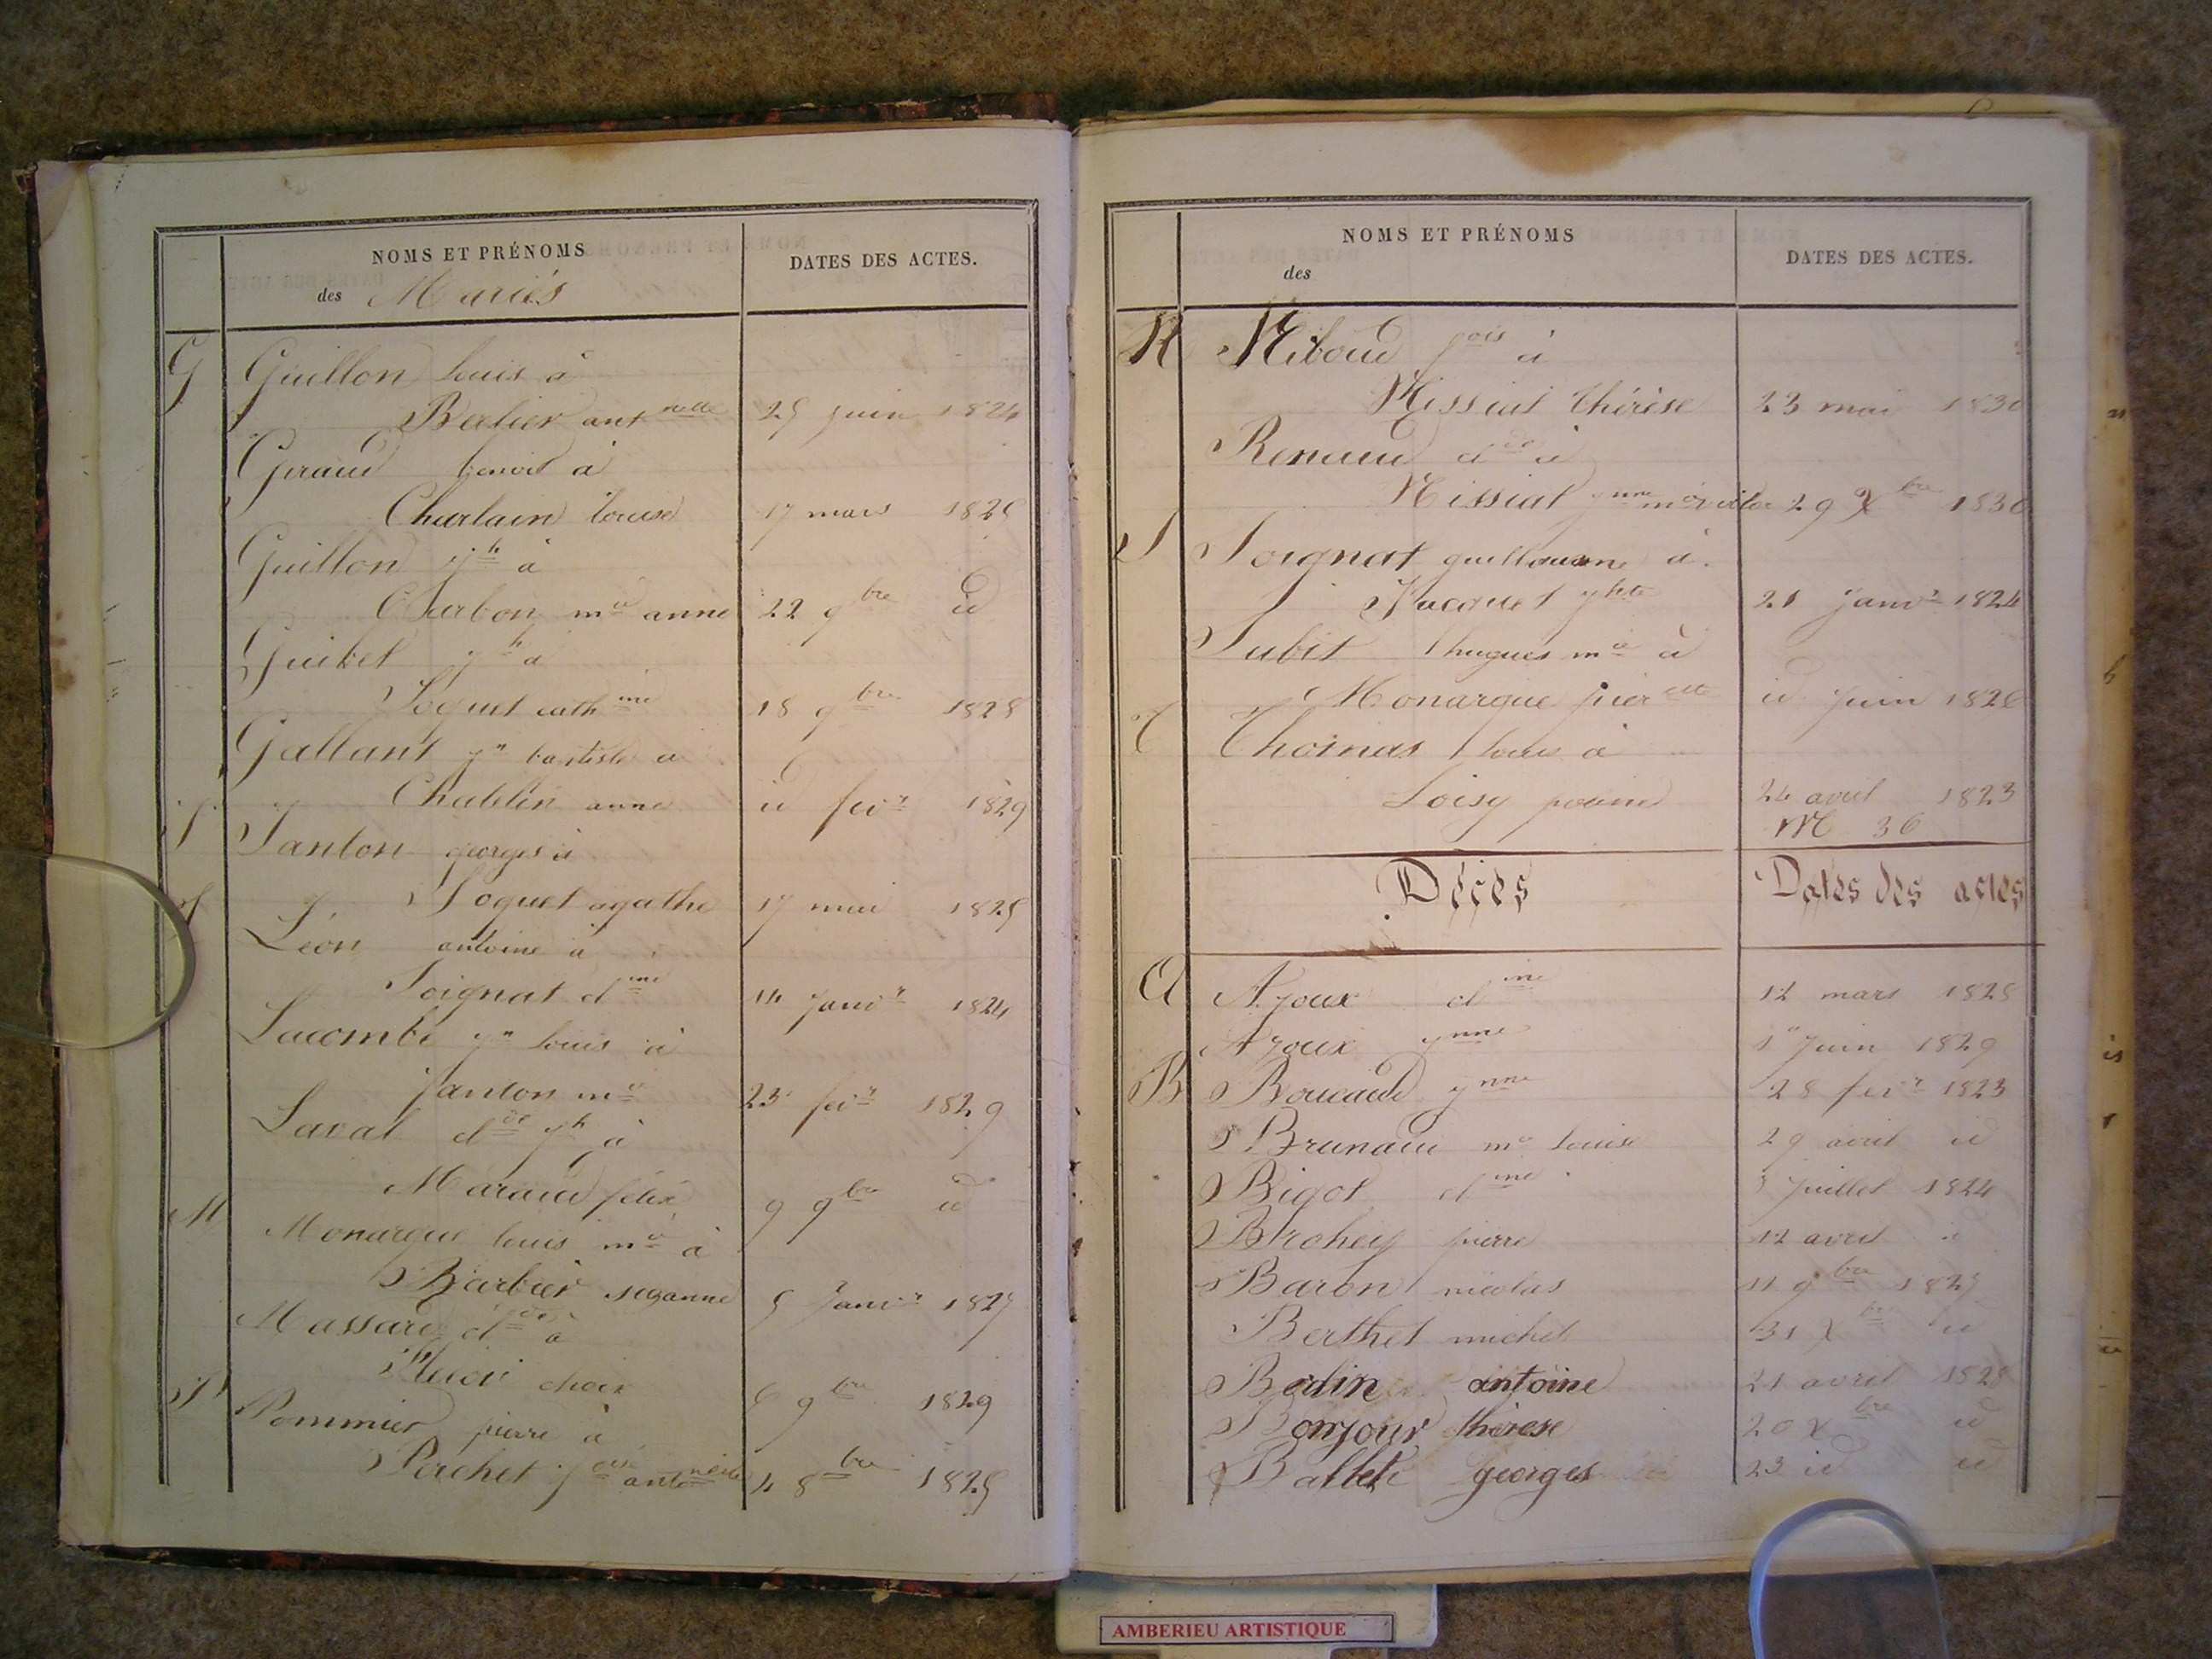 NOMS ET PRÉNOMS
des Mariés
DATES DES ACTES.
G Guillon louis à
Berlier ant nette 25 juin 1824
Giraud benoit à
Charlain louise 17 mars 1825
Guillon jh à
Charbon mie anne 22 9bre id
Guibet jh à
Loquet cath ine 18 9bre 1828
Gallant jn baptiste à
Chatelin anne id fevr 1829
J Janton georges à
Loquet agathe 17 mai 1825
L Léon antoine à
Soignat cl ine 14 Janvr 1824
Lacombe jn louis à
Janton mie 23 fevr 1829
Laval cl de jh à
Maraud félix 9 9bre id
M Monarque louis mie à
Barbier suzanne 5 Janvr 1827
Massard cl de à
6 9bre 1829
P Pommier pierre à
Perchet f oise anto nette 4 8bre 1825
NOMS ET PRÉNOMS
des
DATES DES ACTES.
R Riboud f ois à
Rissiat thérèse 23 mai 1830
Renaud cl de à
Rissiat j nne mie victoire 29 Xbre 1830
S Soignat guillaume à
Jacquet 21 janvr 1824
Subit hugues mie à
Monarque pier ette id Juin 1826
T Thomas louis à
Loisy 24 avril 1823
M 36
Décès Dates des actes
A Ajoux cl ine 12 mars 1828
Ajoux j nne 1er Juin 1829
B Boucaud j nne 28 fevr 1823
Brunaud mie louise 29 avril id
Bigot cl ine 3 Juillet 1824
Brohey pierre 12 avril id
Baron nicolas 11 9bre 1825
Berthet michel 31 Xbre id
Bodin antoine 21 avril 1828
Bonjour thérese 20 Xbre id
Ballet georges 23 id id
AMBERIEU ARTISTIQUE